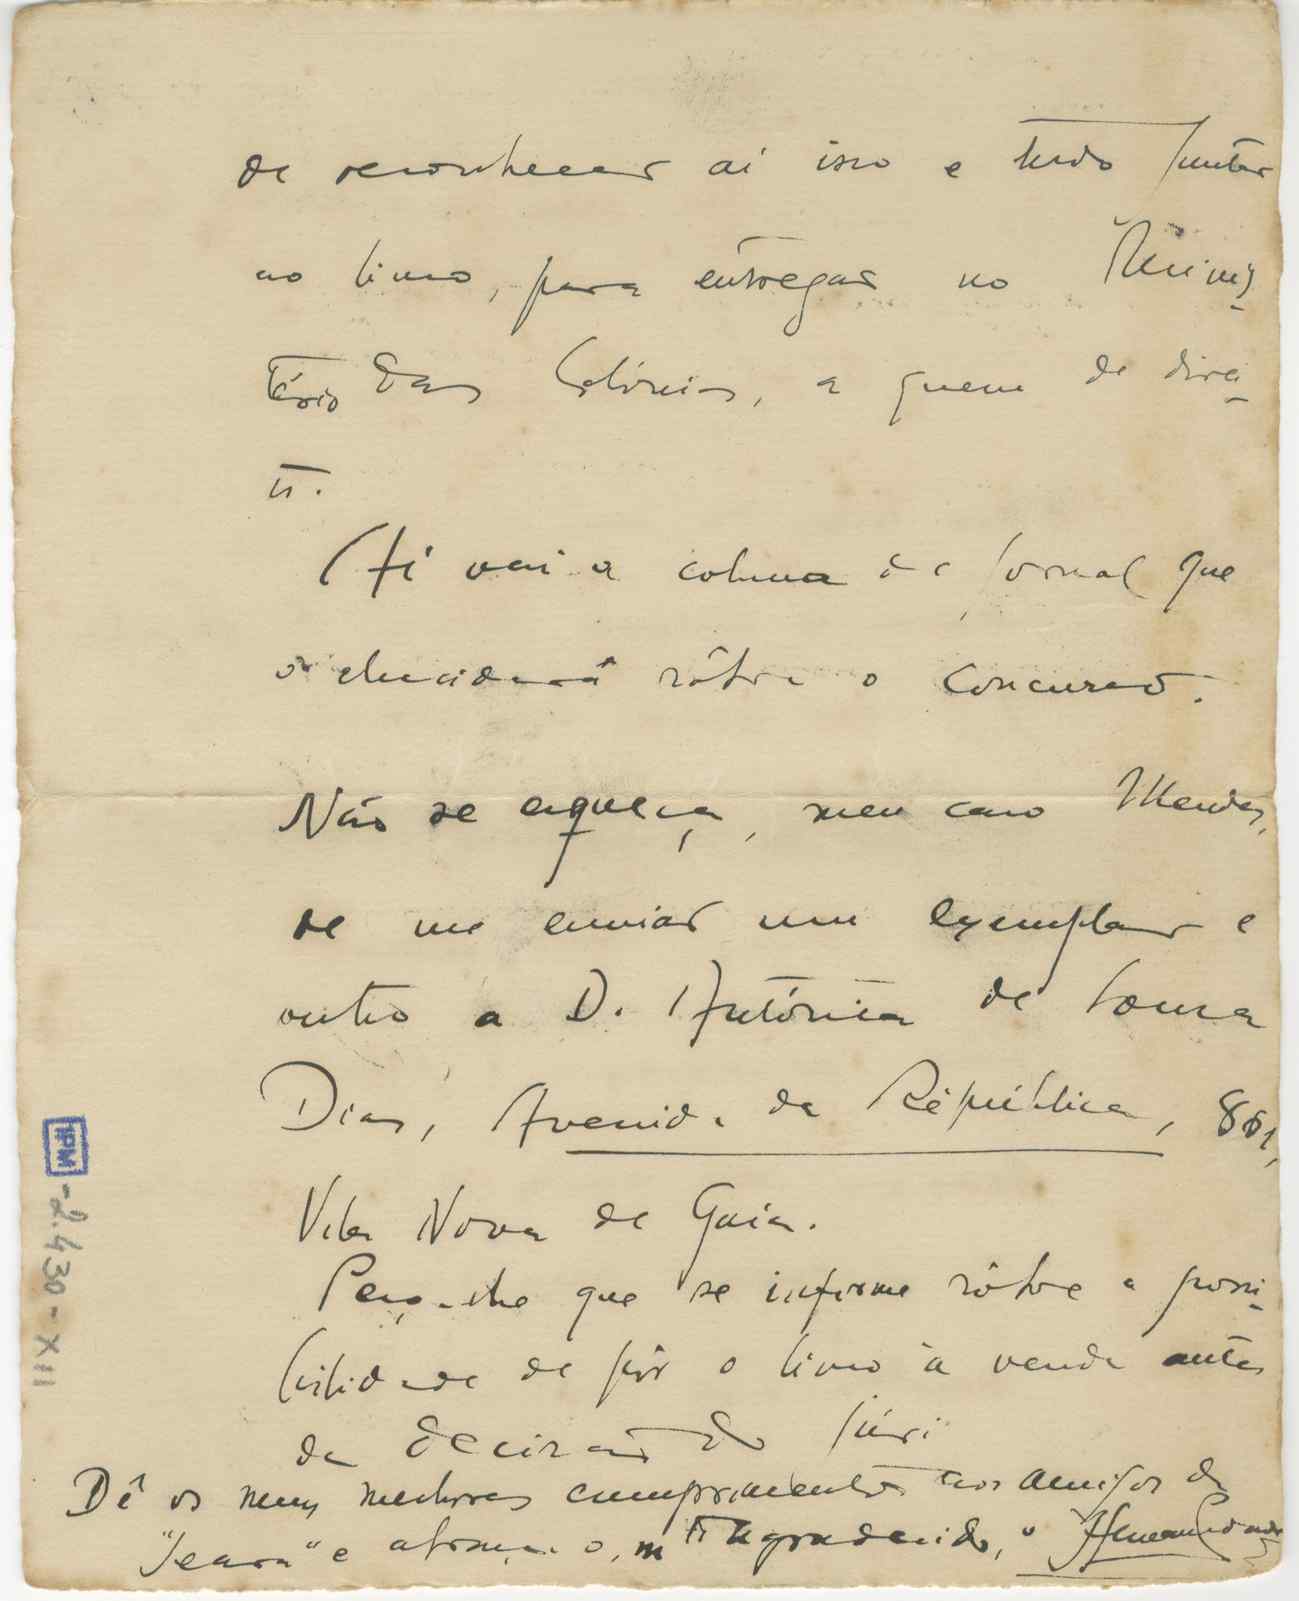 de reconhecer aí isso e tudo juntar
ao livro, para entregar no Minis-
tério das Colónias, a quem de direi-
to.
Aí vai a coluna de jornal que
o elucidará sôbre o concurso.
Não se esqueça, meu caro Mendes,
de me enviar um exemplar e
outro a D. Antónia de Sousa
Dias, Avenida da República, 861,
Vila Nova de Gaia.
Peço-lhe que se informe sôbre a possi-
bilidade de pôr o livro à venda antes
da decisão do júri
Dê os meus melhores cumprimentos aos amigos da
"Seara" e abraça-o, m.to agradecido, o
IPM - 2.430 - XII